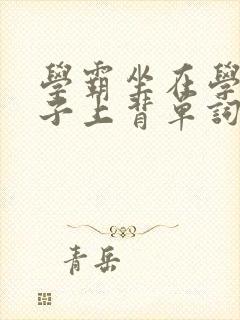 學霸坐在學
子上背單詞
青岳